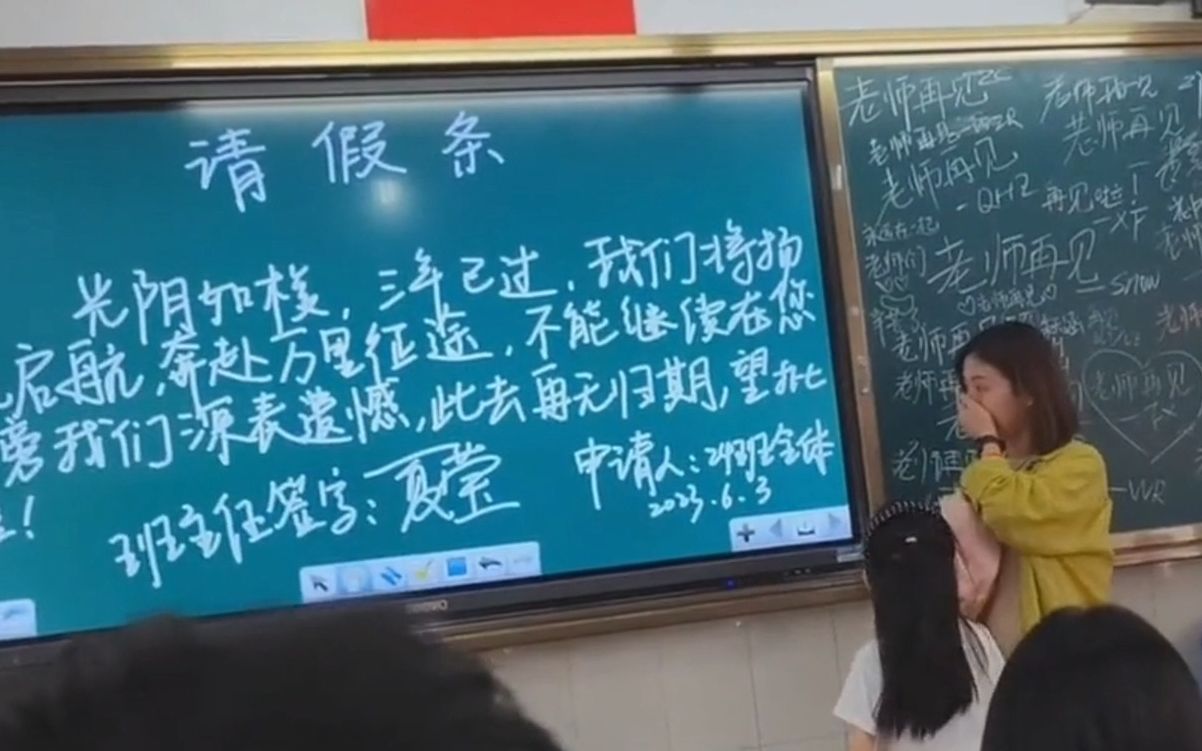 请假条
光阴如梭，三年已过，我们将扬
启航，奔赴万里征途，不能继续在您
旁我们深表遗憾，此去再无归期，望批
！
班主任签字：夏莹
申请人：24班全体
2023.6.3
老师再见 ZC
老师再见
老师再见
老师再见
- QHZ
再见啦！
- XF
永远在一起
老师们
老师再见
- Snow
♡老师再见♡
老师再
老师再
老师再见
- FX
老师再
- WR